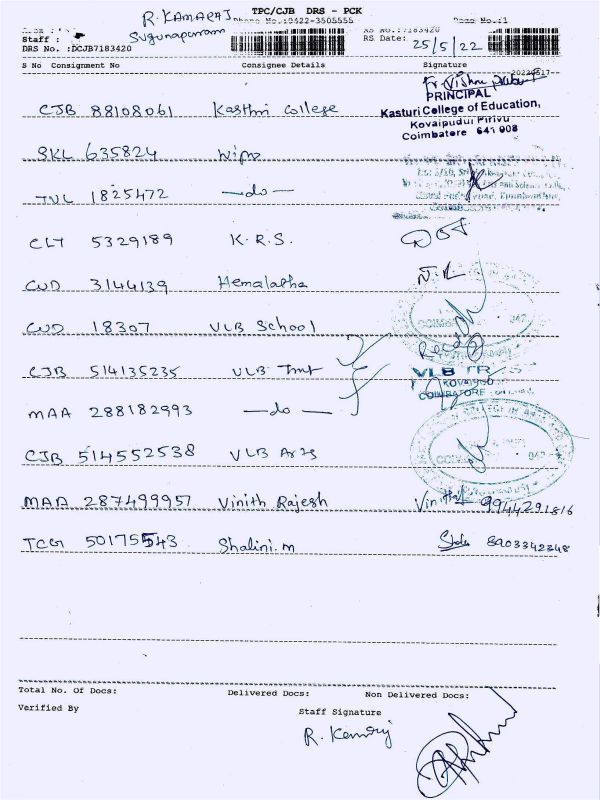 TPC/CJB DRS - PCK
R. KAMARAJ
Phone No.:0422-3505555
Page No.:1
Sugunapuram
Staff :
RS No.:7183420
DRS No. :DCJB7183420
RS Date: 25/5/22
S No Consignment No Consignee Details Signature
PRINCIPAL
CJB 88108061 Kasthri College
Kasturi College of Education,
Kovaipudur Pirivu
Coimbatore 641 008
SKL 635824 Wipro
TVL 1825472 —do—
CLT 5329189 K.R.S.
CUD 3144139 Hemalatha
CUD 18307 VLB School
CJB 514135235 VLB Trust
VLB TRUST
COIMBATORE
MAA 288182993 —do—
CJB 514552538 VLB Arts
MAA 287499957 Vinith Rajesh 9944291816
TCG 50175543 Shalini.m 8903342348
Total No. Of Docs: Delivered Docs: Non Delivered Docs:
Verified By Staff Signature
R. Kamaraj